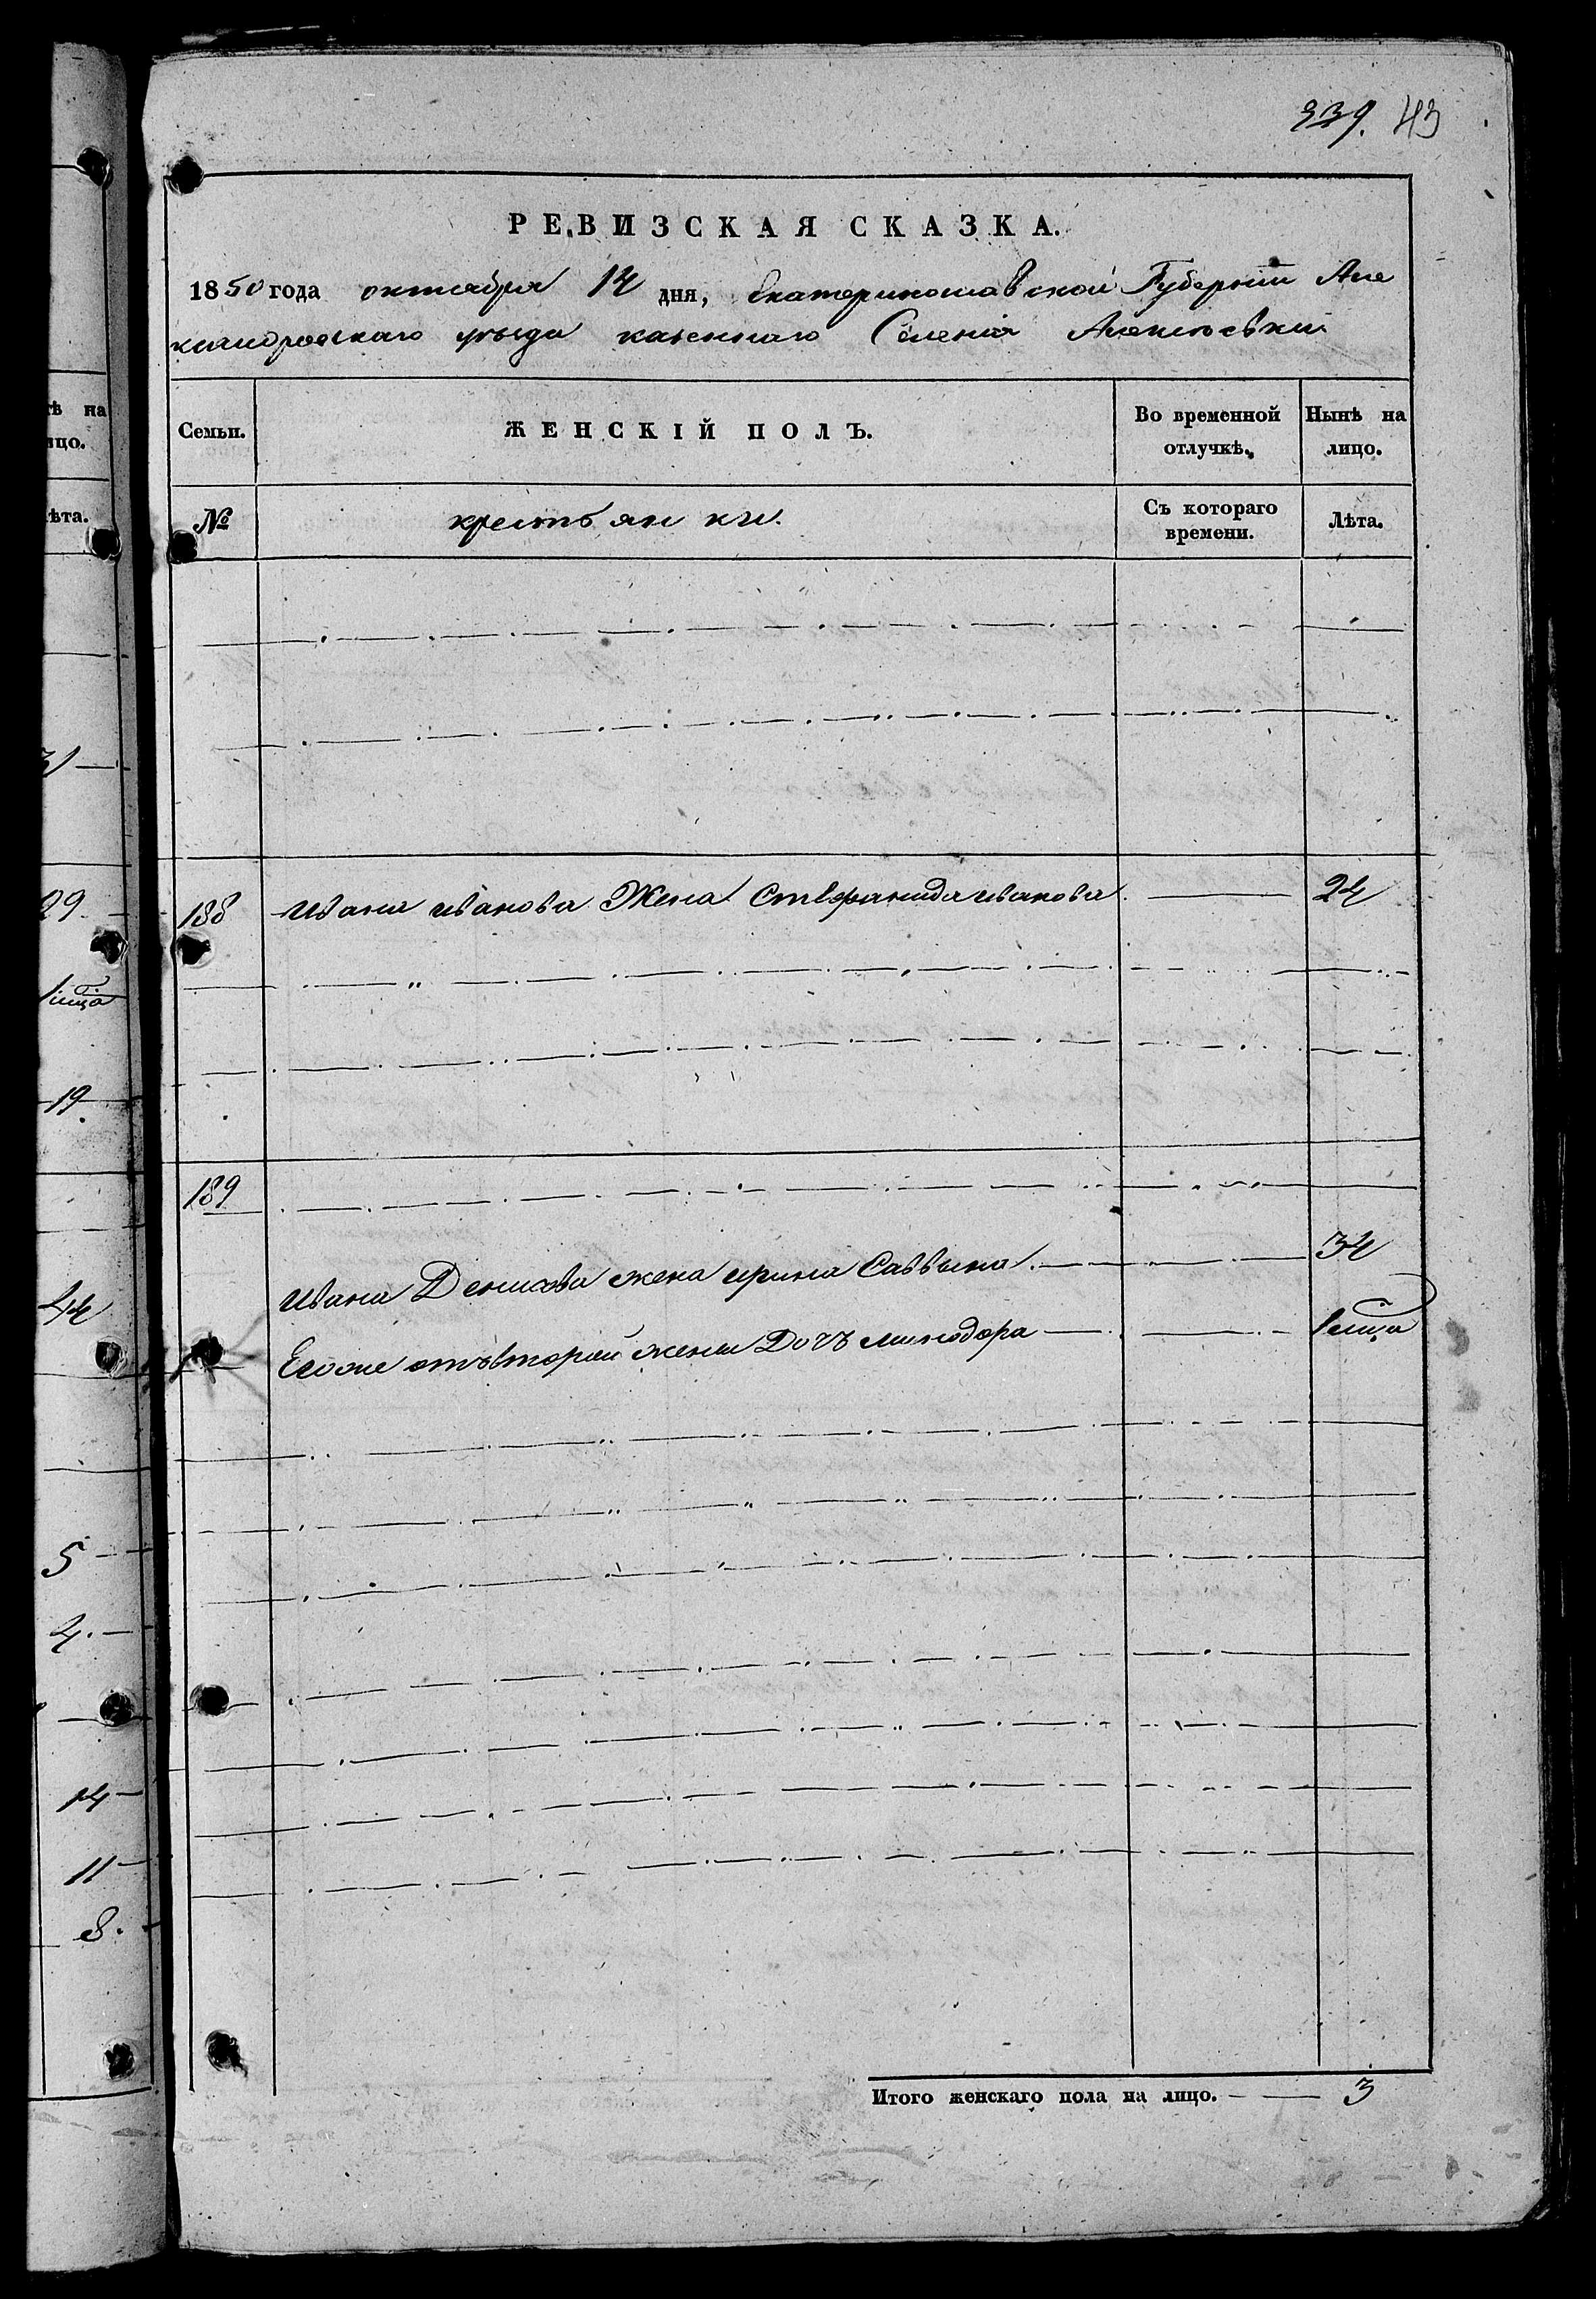 339. 43
РЕВИЗСКАЯ СКАЗКА.
1850 года октября 14 дня, Екатеринославской Губерніи Але
ксандровскаго уезда казеннаго Селенія
Семьи. ЖЕНСКІЙ ПОЛЪ. Во временной отлучкѣ. Нынѣ на лицо.
№ крестьянки. Съ котораго времени. Лѣта.
188 Ивана иванова Жена Стефанида иванова 24
189
Ивана Денисова жена ирина Саввина 34
Егоже отъвторой жены Дочъ минодора 1 мца
Итого женскаго пола на лицо. 3
ѣ на
ицо.
ѣта.
31
29
19
44
5
4.
14
11
8.